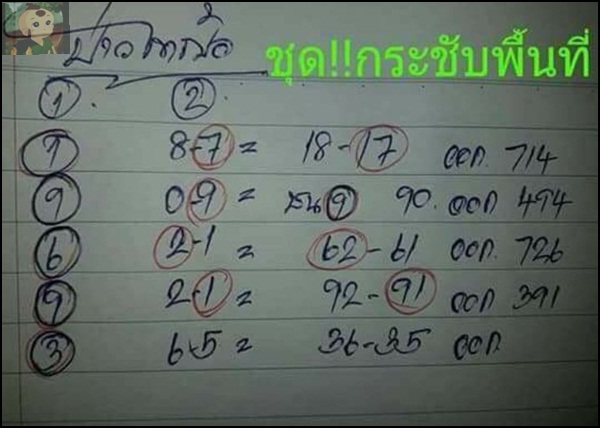 ชุด!!กระชับพื้นที่
① ②
① 8-7 = 18-17 ออก. 714
⑨ 0-9 = ชน ⑨ 90. ออก 494
⑥ 2-1 = 62-61 ออก. 726
⑨ 2-1 = 92-91 ออก 391
③ 6-5 = 36-35 ออก.